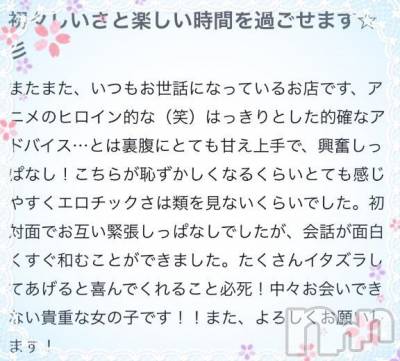 初々しいさと楽しい時間を過ごせます☆
彡
またまた、いつもお世話になっているお店です、ア
ニメのヒロイン的な（笑）はっきりとした的確なア
ドバイス…とは裏腹にとても甘え上手で、興奮しっ
ぱなし！こちらが恥ずかしくなるくらいとても感じ
やすくエロチックさは類を見ないくらいでした。初
対面でお互い緊張しっぱなしでしたが、会話が面白
くすぐ和むことができました。たくさんイタズラし
てあげると喜んでくれること必死！中々お会いでき
ない貴重な女の子です！！また、よろしくお願いし
ます！